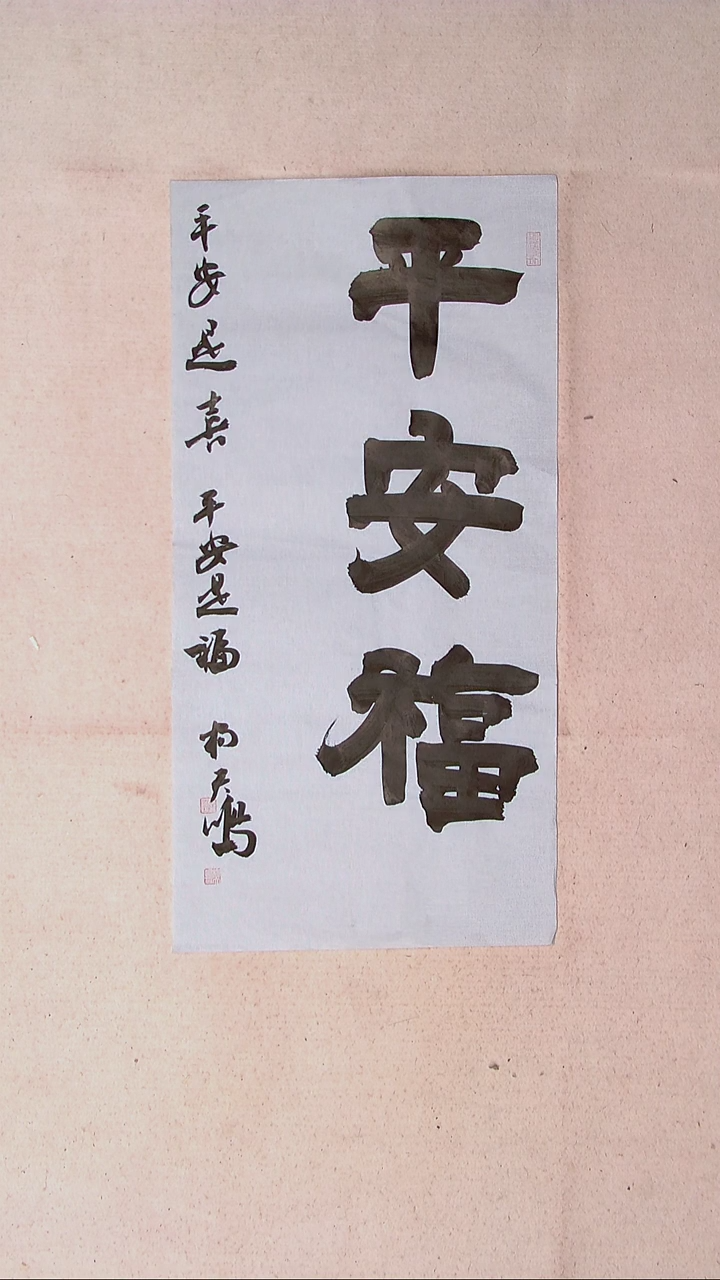 平安福
平安是喜 平安是福 杨天鸣